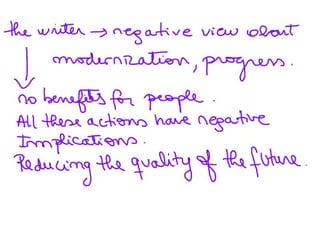 the writer → negative view about
modernization, progress.
no benefits for people.
All these actions have negative
Implications.
Reducing the quality of the future.